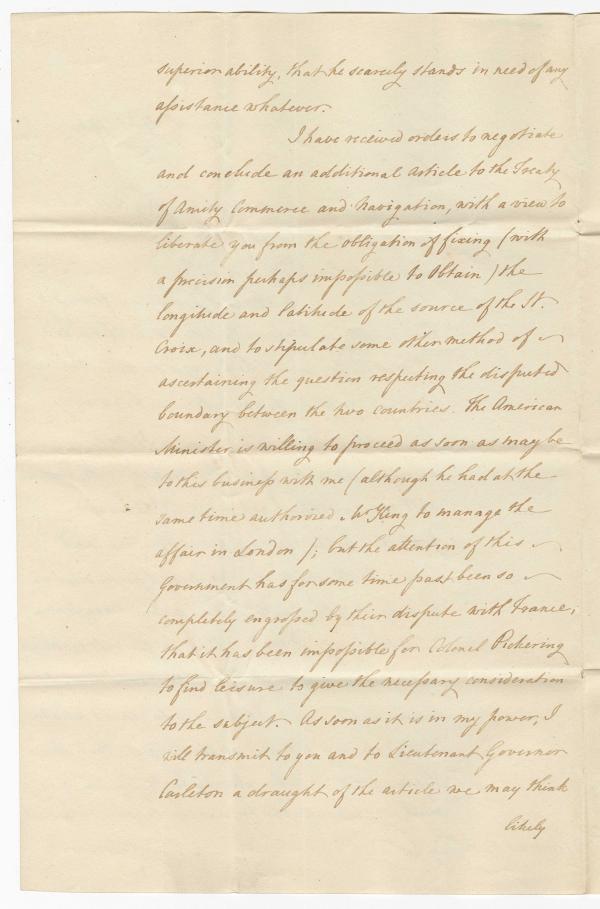 superior ability, that he scarcely stands in need of any
assistance whatever.
I have received orders to negotiate
and conclude an additional article to the Treaty
of Amity Commerce and Navigation, with a view to
liberate you from the obligation of fixing (with
a precision perhaps impossible to obtain) the
longitude and latitude of the source of the St.
Croix, and to stipulate some other method of
ascertaining the question respecting the disputed
boundary between the two countries. The American
Minister is willing to proceed as soon as may be
to this business with me (although he had at the
same time authorized Mr King to manage the
affair in London); but the attention of this
Government has for some time past been so
completely engrossed by their dispute with France,
that it has been impossible for Colonel Pickering
to find leisure to give the necessary consideration
to the subject. As soon as it is in my power, I
will transmit to you and to Lieutenant Governor
Carleton a draught of the article we may think
likely